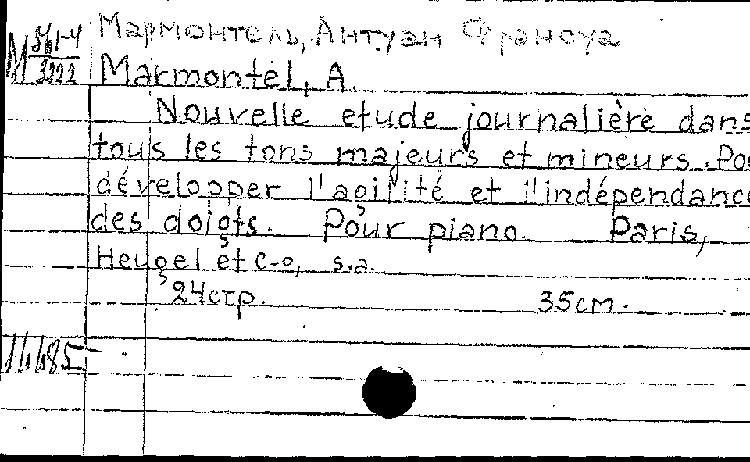 Мармонтель, Антуан Франсуа
М 361-4
3222
Marmontel, A.
Nouvelle etude journalière dans
tous les tons majeurs et mineurs. Pou
développer l'agilité et l'indépendance
des doigts. Pour piano. Paris,
Heugel et C-o, s.a.
24стр. 35см.